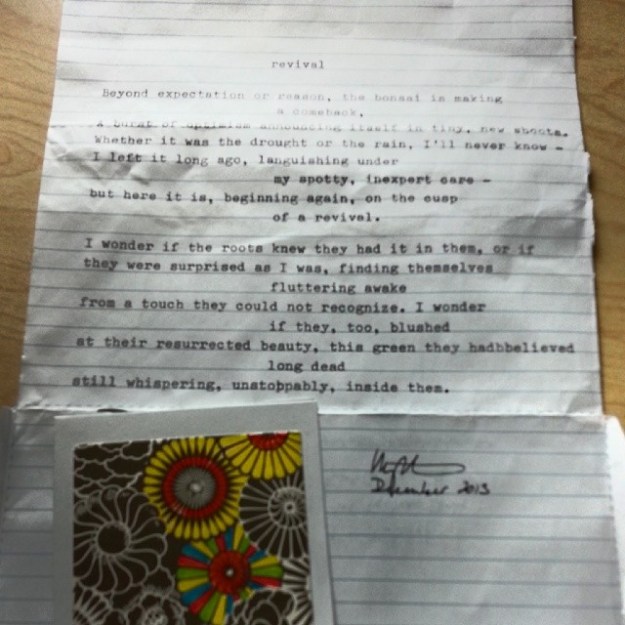 revival
Beyond expectation or reason, the bonsai is making
a comeback,
a burst of optimism announcing itself in tiny, new shoots.
Whether it was the drought or the rain, I'll never know –
I left it long ago, languishing under
my spotty, inexpert care –
but here it is, beginning again, on the cusp
of a revival.
I wonder if the roots knew they had it in them, or if
they were surprised as I was, finding themselves
fluttering awake
from a touch they could not recognize. I wonder
if they, too, blushed
at their resurrected beauty, this green they hadbbelieved
long dead
still whispering, unstoppably, inside them.
December 2013